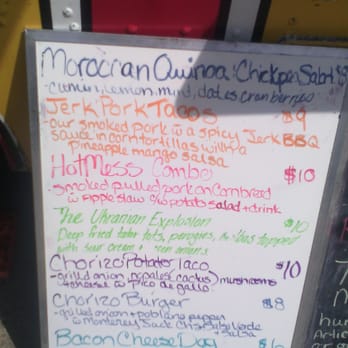 Moroccan Quinoa Chickpea Salad $8
cumin, lemon, mint, dates cranberries
Jerk Pork Tacos $9
- our smoked pork w a spicy Jerk BBQ
sauce in corn tortillas with a
pineapple mango salsa
Hot Mess Combo $10
- smoked pulled pork on cornbread
w apple slaw potato salad + drink
The Ukranian Explosion $10
Deep fried tator tots, perogies, topped
with sour cream + green onions
Chorizo Potato Taco $10
- grilled onion nopales (cactus) mushrooms
+ cheese w pico de gallo
Chorizo Burger $8
- grilled onion + poblano pepper
w Monterey Jack Salsa Verde
+ salsa
Bacon Cheese Dog $6